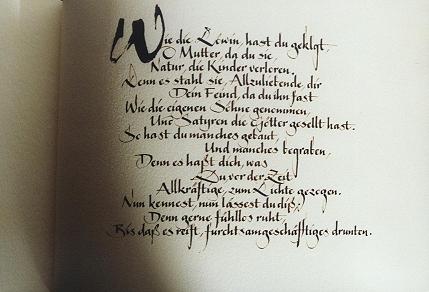 Wie die Löwin, hast du geklagt,
O Mutter, da du sie,
Natur, die Kinder verloren.
Denn es stahl sie, Allzuliebende, dir
Dein Feind, da du ihn fast
Wie die eigenen Söhne genommen,
Und Satyren die Götter gesellt hast.
So hast du manches gebaut,
Und manches begraben,
Denn es haßt dich, was
Du vor der Zeit
Allkräftige, zum Lichte gezogen.
Nun kennest, nun lässest du diß;
Denn gerne fühllos ruht,
Bis daß es reift, furchtsamgeschäfftiges drunten.